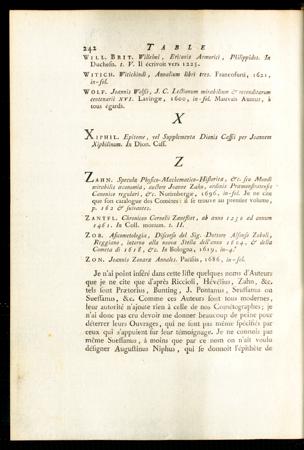 242 TABLE
WILL. BRIT. Willelmi, Britonis Armorici, Philippidos. In
Duchesn. t. V. Il écrivoit vers 1225.
WITICH. Witichindi, Annalium libri tres. Francofurti, 1621,
in-fol.
WOLF. Joannis Wolfii, J. C. Lectionum mirabilium & reconditarum
centenarii XVI. Lavingæ, 1600, in-fol. Mauvais Auteur, à
tous égards.
X
XIPHIL. Epitome, vel Supplementa Dionis Cassii per Joannem
Xiphilinum. In Dion. Cass.
Z
ZAHN. Specula Physico-Mathematico-Historica, &c. seu Mundi
mirabilis œconomia, auctore Joanne Zahn, ordinis Præmonstratensis
Canonico regulari, &c. Norimbergæ, 1696, in-fol. Je ne cite
que son catalogue des Cometes: il se trouve au premier volume,
p. 162 & suivantes.
ZANTFL. Chronicon Cornelii Zantfliet, ab anno 1230 ad annum
1461. In Coll. monum. t. II.
ZOB. Ascometologia, Discorso del Sig. Dottore Alfonso Zoboli,
Reggiano, intorno alla nuova Stella dell'anno 1604, & della
Cometa di 1618, &c. In Bologna, 1619, in-4°.
ZON. Joannis Zonaræ Annales. Parisiis, 1686, in-fol.
Je n'ai point inséré dans cette liste quelques noms d'Auteurs
que je ne cite que d'après Riccioli, Hévélius, Zahn, &c.
tels sont Prætorius, Bunting, J. Pontanus, Sueffanus ou
Sueffanus, &c. Comme ces Auteurs sont tous modernes,
leur autorité n'ajoute rien à celle de nos Cométographes; je
n'ai donc pas cru devoir me donner beaucoup de peine pour
déterrer leurs Ouvrages, qui ne sont pas même spécifiés par
ceux qui s'appuient sur leur témoignage. Je ne connois pas
même Sueffanus, à moins que par ce nom on n'ait voulu
désigner Augustinus Niphus, qui se donnoit l'épithète de